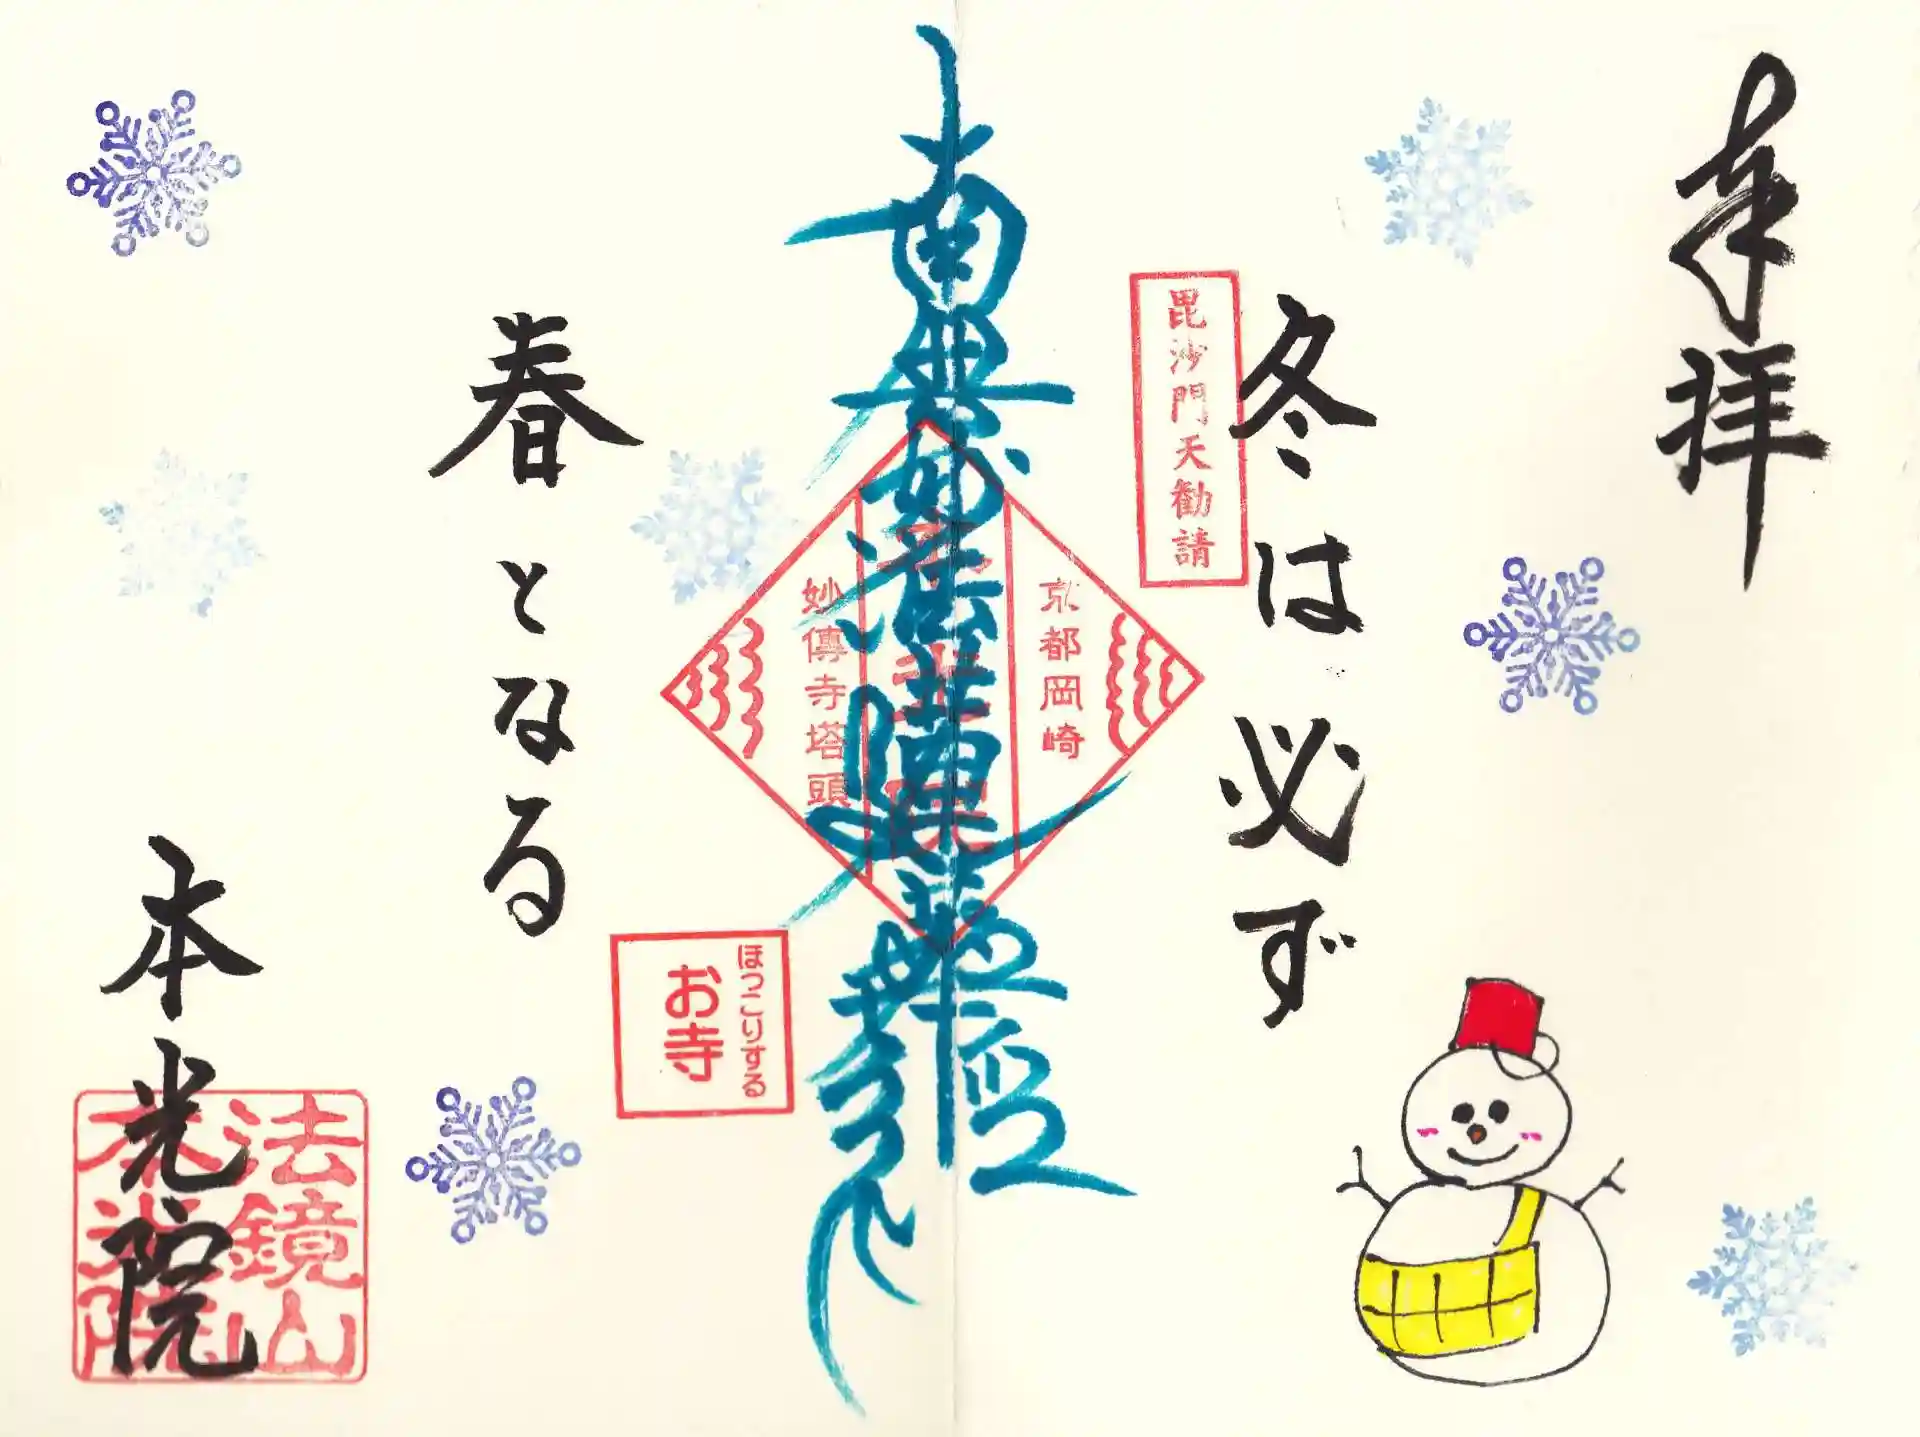 奉拝
冬は必ず
毘沙門天勧請
京都岡崎
本光院
妙傳寺塔頭
南無妙法蓮華経
ほっこりする
お寺
春となる
本光院
法鏡山
本光院